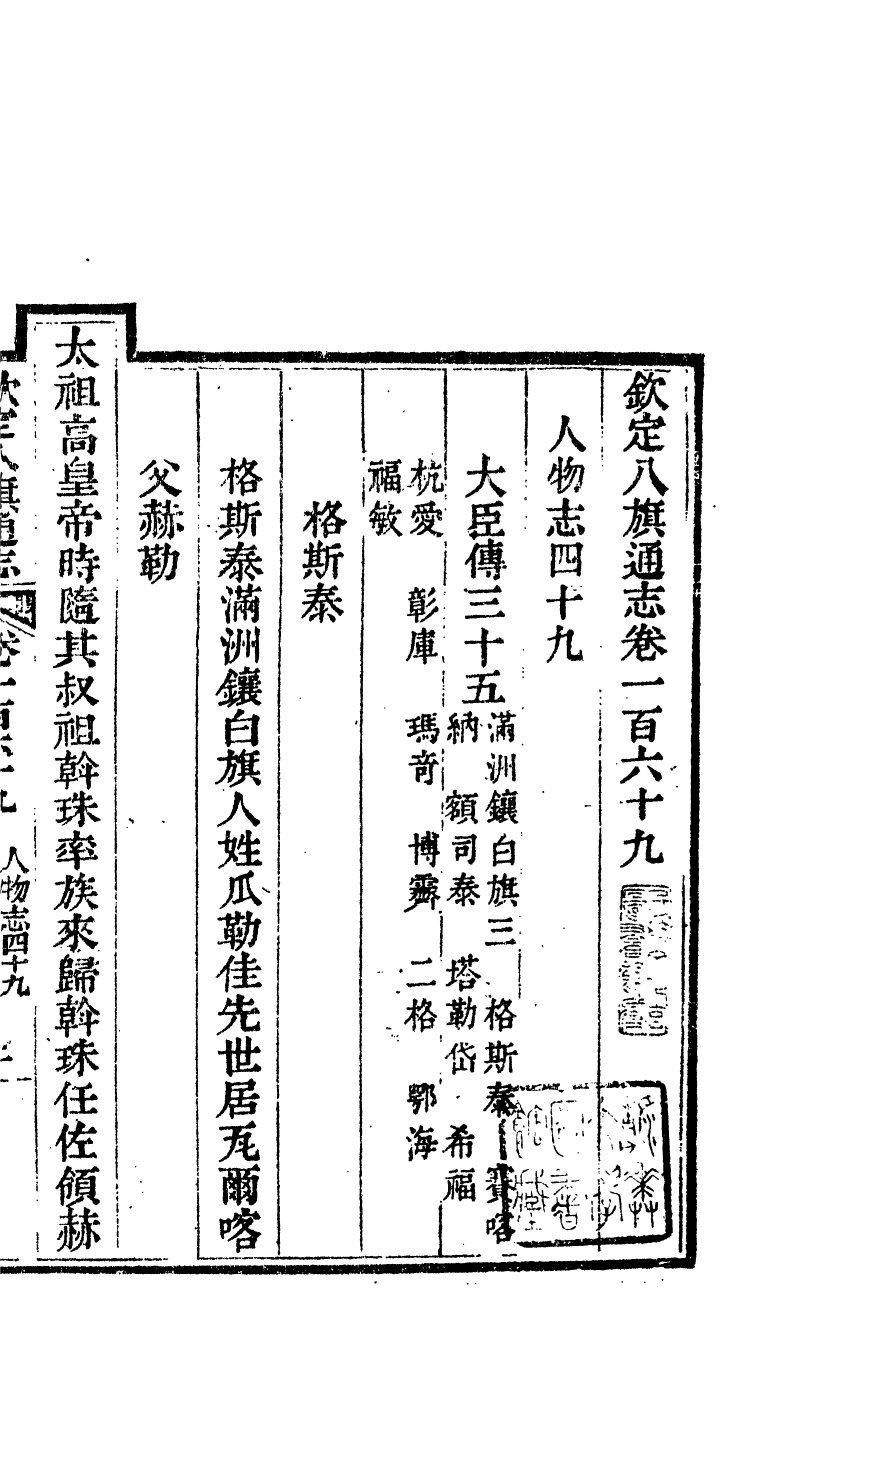 欽定八旗通志卷一百六十九
人物志四十九
大臣傳三十五
滿洲鑲白旗三　格斯泰　賽喀
納　額司泰　塔勒岱　希福
杭愛　彰庫　瑪奇　博霽　二格　鄂海
福敏
格斯泰
格斯泰滿洲鑲白旗人姓瓜勒佳先世居瓦爾喀
父赫勒
太祖高皇帝時隨其叔祖斡珠率族來歸斡珠任佐領赫
欽定八旗通志　卷一百六十九　人物志四十九